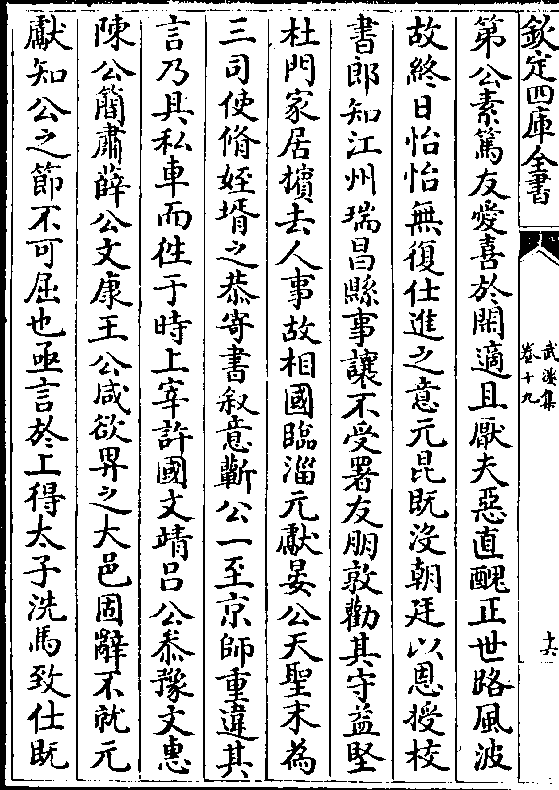 欽定四庫全書
武溪集
卷十九
十六
第公素篤友愛喜於閑適且厭夫惡直醜正世路風波
故終日怡怡無復仕進之意元昆既沒朝廷以恩授校
書郎知江州瑞昌縣事讓不受署友朋敦勸其守益堅
杜門家居擯去人事故相國臨淄元獻晏公天聖末為
三司使脩姪壻之恭寄書叙意蘄公一至京師重違其
言乃具私車而徃于時上宰許國文靖呂公叅豫文惠
陳公簡肅薛公文康王公咸欲畀之大邑固辭不就元
獻知公之節不可屈也亟言於上得太子洗馬致仕既